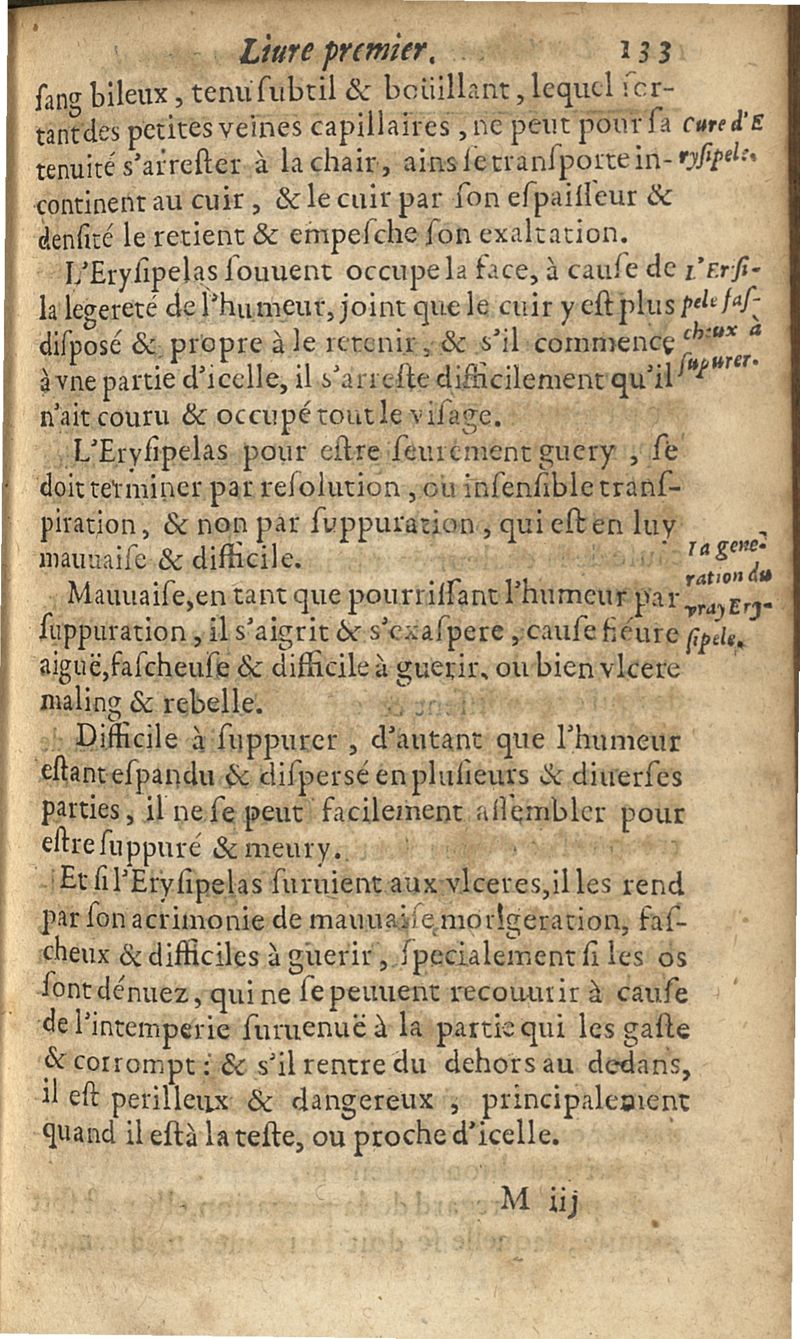 Liure premier. 133
ſang bileux, tenu ſubtil & boüillant, lequel ſor-
tant des petites veines capillaires, ne peut pour ſa
tenuité s'arreſter à la chair, ains ſe tranſporte in-
continent au cuir, & le cuir par ſon eſpaiſſeur &
denſité le retient & empeſche ſon exaltation.
Cure d'E
ryſipele.
L'Eryſipelas ſouuent occupe la face, à cauſe de
la legereté de l'humeur, joint que le cuir y eſt plus
diſposé & propre à le retenir, & s'il commence
à vne partie d'icelle, il s'arreſte difficilement qu'il
n'ait couru & occupé tout le viſage.
L'Erſi-
pele faſ-
cheux à
ſupurer.
L'Eryſipelas pour eſtre ſeurement guery, ſe
doit terminer par reſolution, ou inſenſible tranſ-
piration, & non par ſuppuration, qui eſt en luy
mauuaiſe & difficile.
Mauuaiſe, en tant que pourriſſant l'humeur par
ſuppuration, il s'aigrit & s'exaſpere, cauſe fiéure
aiguë, faſcheuſe & difficile à guerir, ou bien vlcere
maling & rebelle.
La gene-
ration du
vray Ery-
ſipele.
Difficile à ſuppurer, d'autant que l'humeur
eſtant eſpandu & diſpersé en pluſieurs & diuerſes
parties, il ne ſe peut facilement aſſembler pour
eſtre ſuppuré & meury.
Et ſi l'Eryſipelas ſuruient aux vlceres, il les rend
par ſon acrimonie de mauuaiſe morigeration, faſ-
cheux & difficiles à guerir, ſpecialement ſi les os
ſont dénuez, qui ne ſe peuuent recouurir à cauſe
de l'intemperie ſuruenuë à la partie qui les gaſte
& corrompt: & s'il rentre du dehors au dedans,
il eſt perilleux & dangereux, principalement
quand il eſt à la teſte, ou proche d'icelle.
M iij